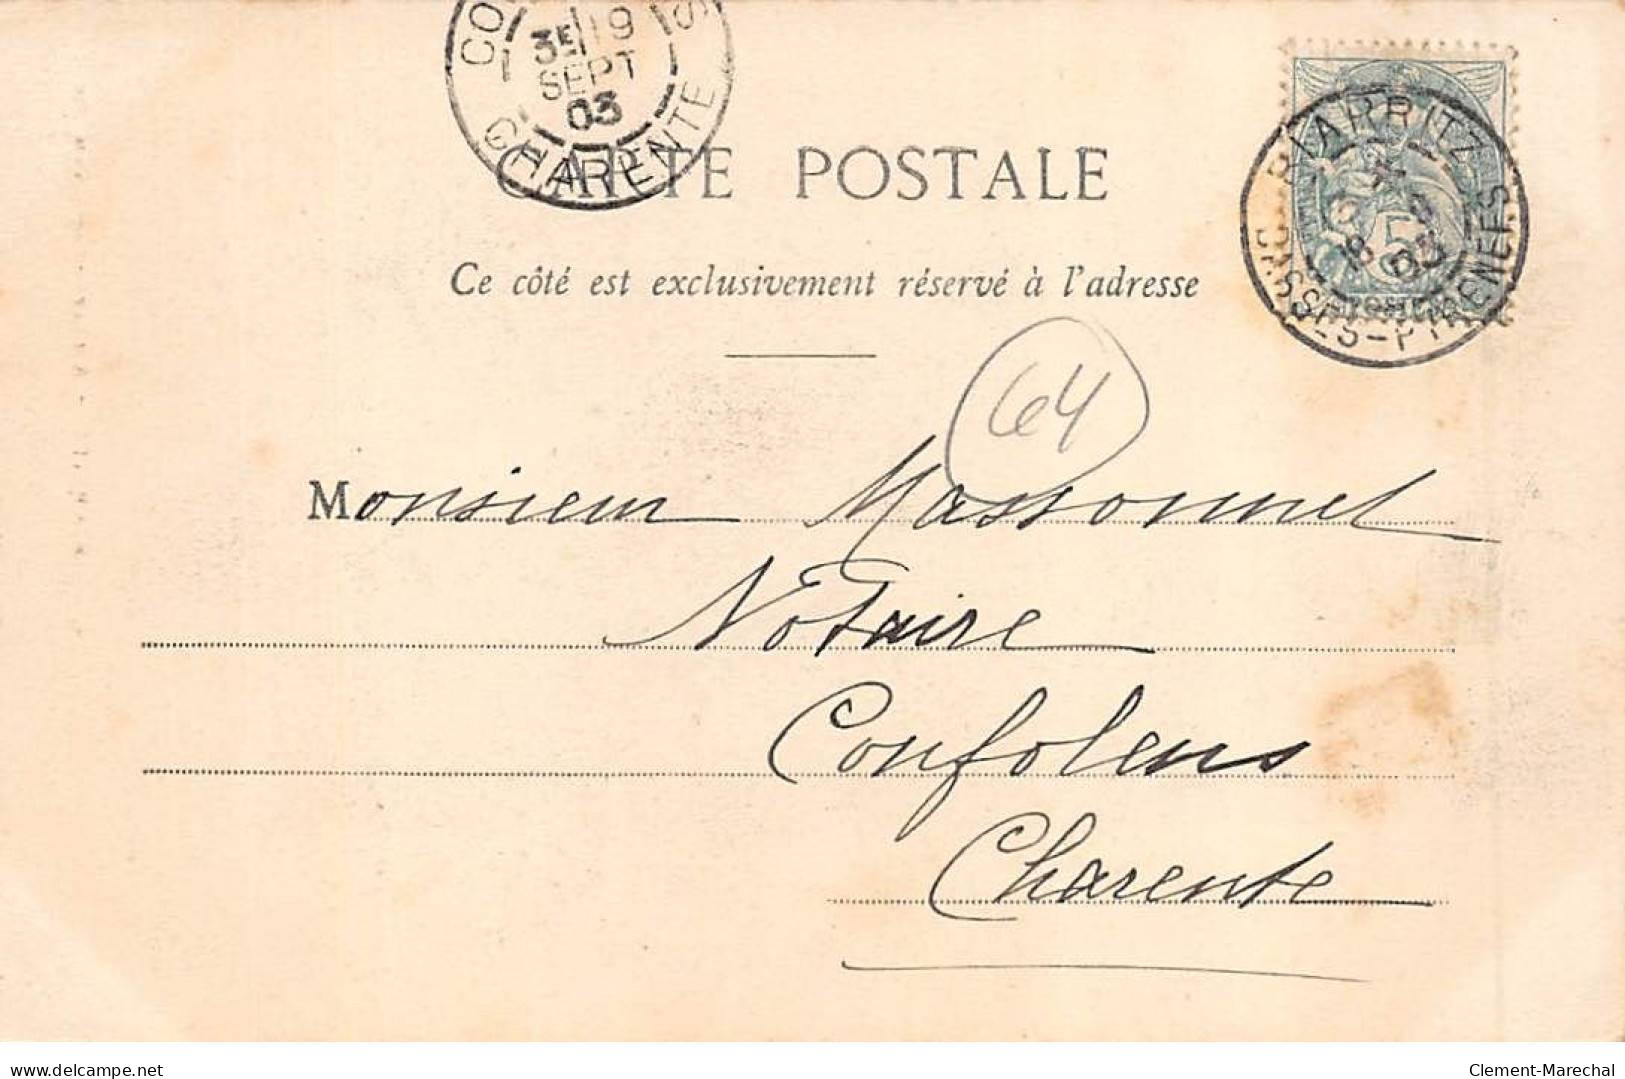 3E 19
SEPT
03
CHARENTE
CARTE POSTALE
BIARRITZ
18
03
BSSES-PYRENEES
5
Ce côté est exclusivement réservé à l'adresse
64
Monsieur Massonnet
Notaire
Confolens
Charente
delcampe.net
Clement-Marechal